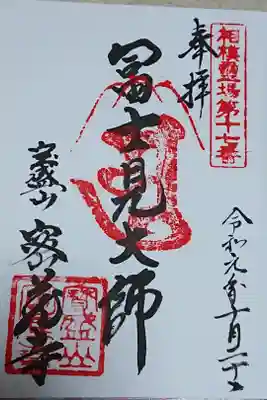 相模霊場第十七番
奉拝
冨士見大師
宝盛山
密蔵寺
令和元年十月二十二